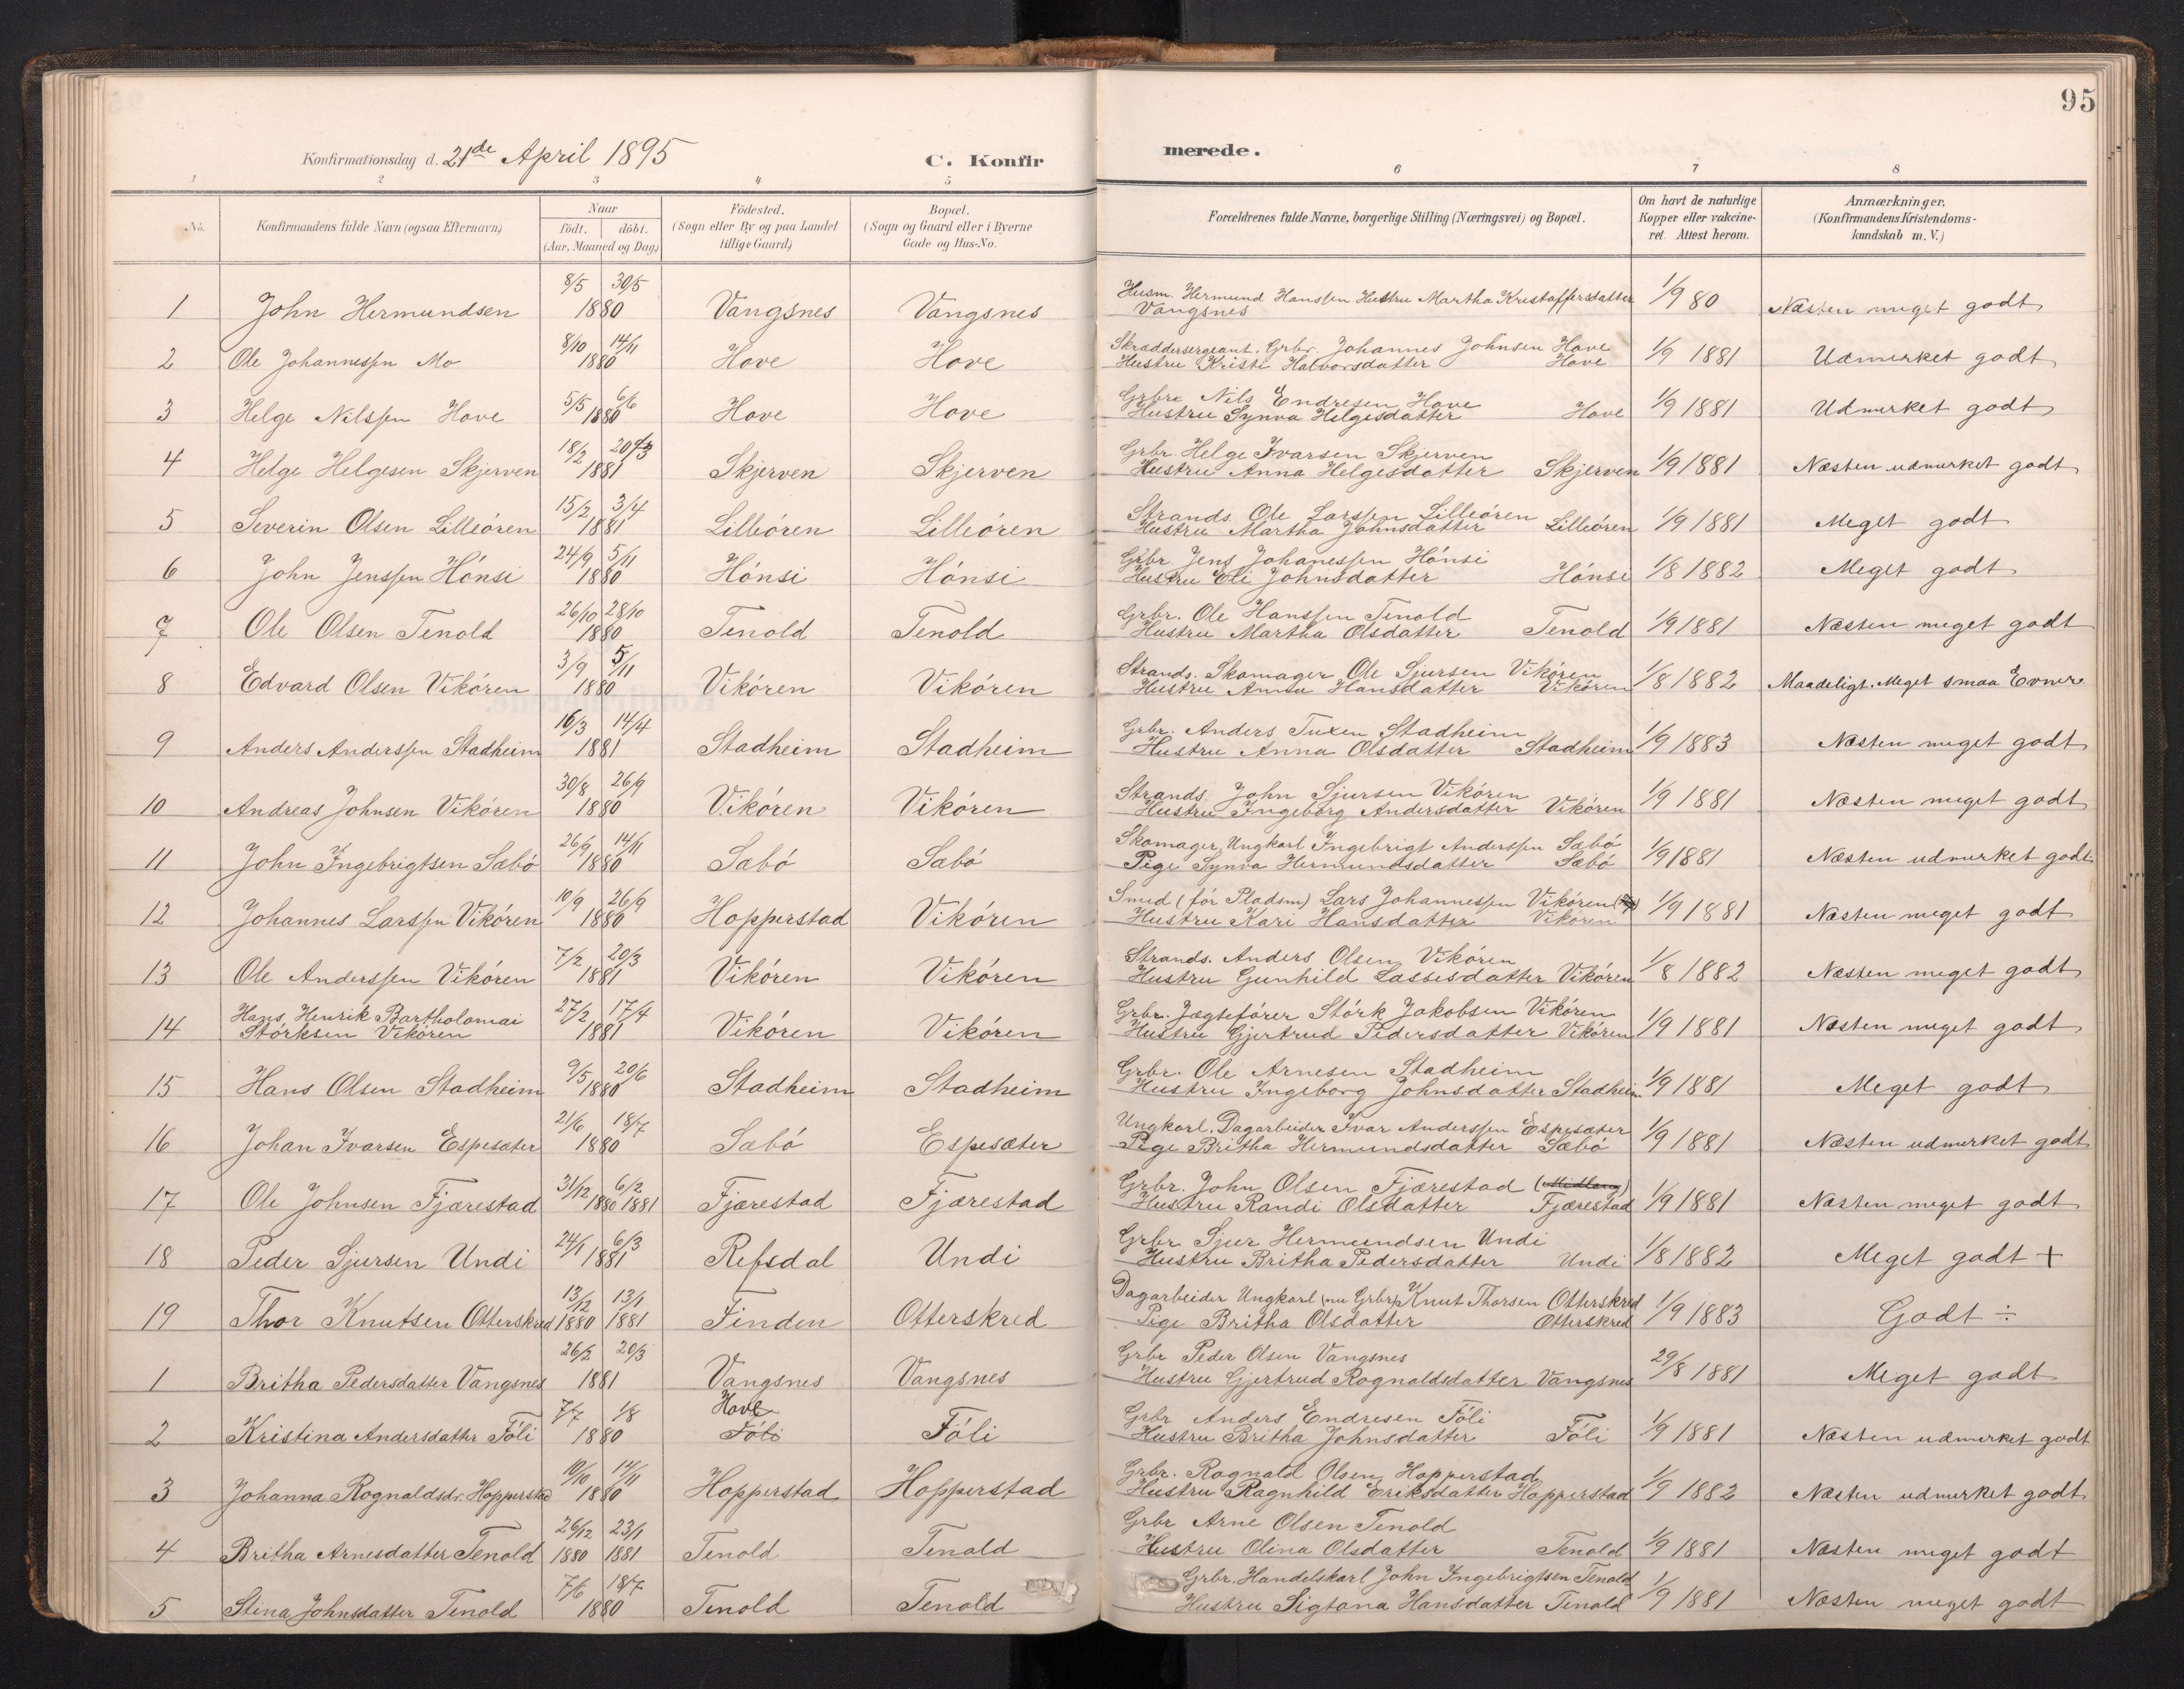 95
Konfirmationsdag d. 21de April 1895 C. Konfirmerede.
1 2 3 4 5 6 7 8
No. Konfirmandens fulde Navn (ogsaa Efternavn) Naar födt. döbt. (Aar, Maaned og Dag) Födested. (Sogn eller By og paa Landet tillige Gaard) Bopæl. (Sogn og Gaard eller i Byerne Gade og Hus-No. Forældrenes fulde Navne, borgerlige Stilling (Næringsvei) og Bopæl. Om havt de naturlige Kopper eller vakcineret. Attest herom. Anmærkninger. (Konfirmandens Kristendomskundskab m. V.)
1 John Hermundsen 8/5 30/5 1880 Vangsnes Vangsnes Husm. Hermund Hanssen Hustru Martha Kristoffersdatter Vangsnes 1/9 80 Næsten meget godt
2 Ole Johannessen Mo 8/10 14/11 1880 Hove Hove Skræddersergeant. Grbr. Johannes Johnsen Hove
Hustru Kristi Halvorsdatter Hove 1/9 1881 Udmerket godt
3 Helge Nilssen Hove 5/5 6/6 1880 Hove Hove Grbr. Nils Endresen Hove
Hustru Synva Helgesdatter Hove 1/9 1881 Udmerket godt
4 Helge Helgesen Skjerven 18/2 20/3 1881 Skjerven Skjerven Grbr Helge Ivarsen Skjerven
Hustru Anna Helgesdatter Skjerven 1/9 1881 Næsten udmerket godt
5 Severin Olsen Lilleóren 15/2 3/4 1881 Lilleóren Lilleóren Strands. Ole Larssen Lilleóren
Hustru Martha Johnsdatter Lilleóren 1/9 1881 Meget godt
6 John Jenssen Hónsi 24/9 5/11 1880 Hónsi Hónsi Grbr Jens Johanessen Hónsi
Hustru Eli Johnsdatter Hónsi 1/8 1882 Meget godt
7 Ole Olsen Tenold 26/10 28/10 1880 Tenold Tenold Grbr. Ole Hanssen Tenold
Hustru Martha Olsdatter Tenold 1/9 1881 Næsten meget godt
8 Edvard Olsen Vikóren 3/9 5/11 1880 Vikóren Vikóren Strands. Skomager Ole Sjursen Vikóren
Hustru Anna Hansdatter Vikóren 1/8 1882 Maadeligt. Meget smaa Evner
9 Anders Anderssen Stadheim 16/3 14/4 1881 Stadheim Stadheim Grbr. Anders Tuxen Stadheim
Hustru Anna Olsdatter Stadheim 1/9 1883 Næsten meget godt
10 Andreas Johnsen Vikóren 30/8 26/9 1880 Vikóren Vikóren Strands. John Sjursen Vikóren
Hustru Ingeborg Andersdatter Vikóren 1/9 1881 Næsten meget godt
11 John Ingebrigtsen Sæbó 26/9 14/11 1880 Sæbó Sæbó Skomager, Ungkarl Ingebrigt Anderssen Sæbó
Pige Synva Hermundsdatter Sæbó 1/9 1881 Næsten udmerket godt
12 Johannes Larssen Vikóren 10/9 26/9 1880 Hopperstad Vikóren Smed (fór Pladsm) Lars Johannessen Vikóren
Hustru Kari Hansdatter Vikóren 1/9 1881 Næsten meget godt
13 Ole Anderssen Vikóren 7/2 20/3 1881 Vikóren Vikóren Strands. Anders Olsen Vikóren
Hustru Gunhild Lassesdatter Vikóren 1/8 1882 Næsten meget godt
14 Hans Henrik Bartholomai Stórksen Vikóren 27/2 17/4 1881 Vikóren Vikóren Grbr. Jægtefórer Stórk Jakobsen Vikóren
Hustru Gjertrud Pedersdatter Vikóren 1/9 1881 Næsten meget godt
15 Hans Olsen Stadheim 9/5 20/6 1880 Stadheim Stadheim Grbr. Ole Arnesen Stadheim
Hustru Ingeborg Johnsdatter Stadheim 1/9 1881 Meget godt
16 Johan Ivarsen Espesæter 21/6 18/7 1880 Sæbó Espesæter Ungkarl. Dagarbeider Ivar Anderssen Espesæter
Pige Britha Hermundsdatter Sæbó 1/9 1881 Næsten udmerket godt
17 Ole Johnsen Fjærestad 31/12 1880 6/2 1881 Fjærestad Fjærestad Grbr. John Olsen Fjærestad (Midlang)
Hustru Randi Olsdatter Fjærestad 1/9 1881 Næsten meget godt
18 Peder Sjursen Undi 24/1 6/3 1881 Refsdal Undi Grbr Sjur Hermundsen Undi
Hustru Britha Pedersdatter Undi 1/8 1882 Meget godt +
19 Thor Knutsen Otterskred 13/12 1880 13/1 1881 Finden Otterskred Dagarbeider Ungkarl (nu Grbr) Knut Thorsen Otterskred
Pige Britha Olsdatter Otterskred 1/9 1883 Godt ÷
1 Britha Pedersdatter Vangsnes 26/2 20/3 1881 Vangsnes Vangsnes Grbr Peder Olsen Vangsnes
Hustru Gjertrud Rognaldsdatter Vangsnes 29/8 1881 Meget godt
2 Kristina Andersdatter Fóli 7/7 1/8 1880 Hove Fóli Fóli Grbr Anders Endresen Fóli
Hustru Britha Johnsdatter Fóli 1/9 1881 Næsten udmerket godt
3 Johanna Rognaldsdr. Hopperstad 10/10 14/11 1880 Hopperstad Hopperstad Grbr. Rognald Olsen Hopperstad
Hustru Ragnhild Eriksdatter Hopperstad 1/9 1882 Næsten udmerket godt
4 Britha Arnesdatter Tenold 26/12 1880 23/1 1881 Tenold Tenold Grbr Arne Olsen Tenold
Hustru Olina Olsdatter Tenold 1/9 1881 Næsten meget godt
5 Stina Johnsdatter Tenold 7/6 18/7 1880 Tenold Tenold Grbr. Handelskarl John Ingebrigtsen Tenold
Hustru Sigtona Hansdatter Tenold 1/9 1881 Næsten meget godt